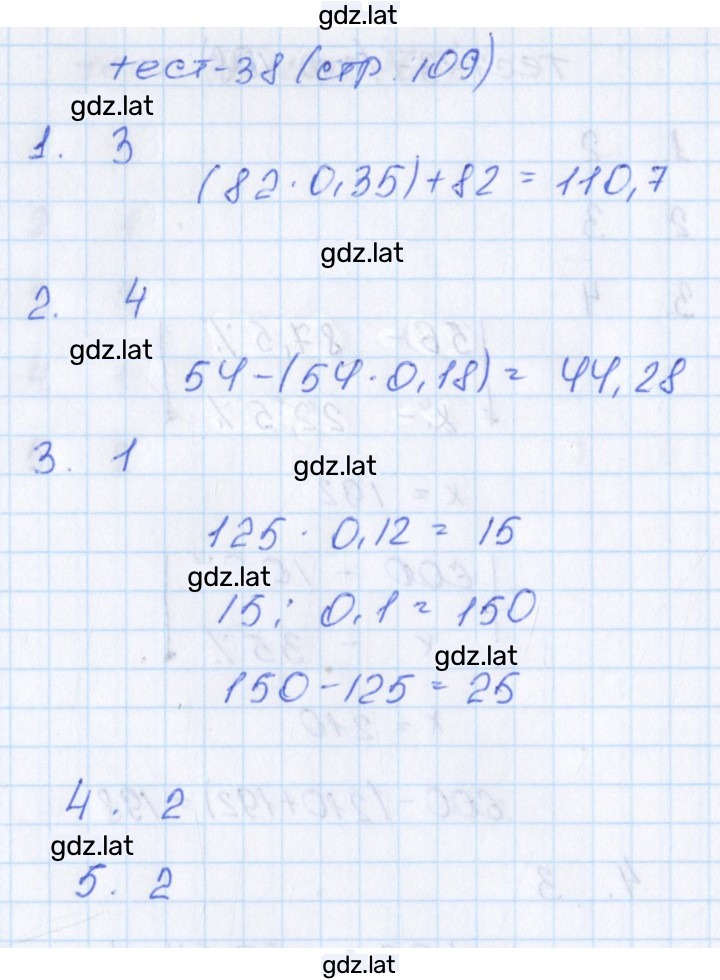 gdz.lat
тест-38 (стр. 109)
gdz.lat
1. 3
(82·0,35)+82 = 110,7
gdz.lat
2. 4
gdz.lat
54-(54·0,18)= 44,28
3. 1
gdz.lat
125 · 0,12 = 15
gdz.lat
15 : 0,1 = 150
gdz.lat
150-125 = 25
4. 2
gdz.lat
5. 2
gdz.lat